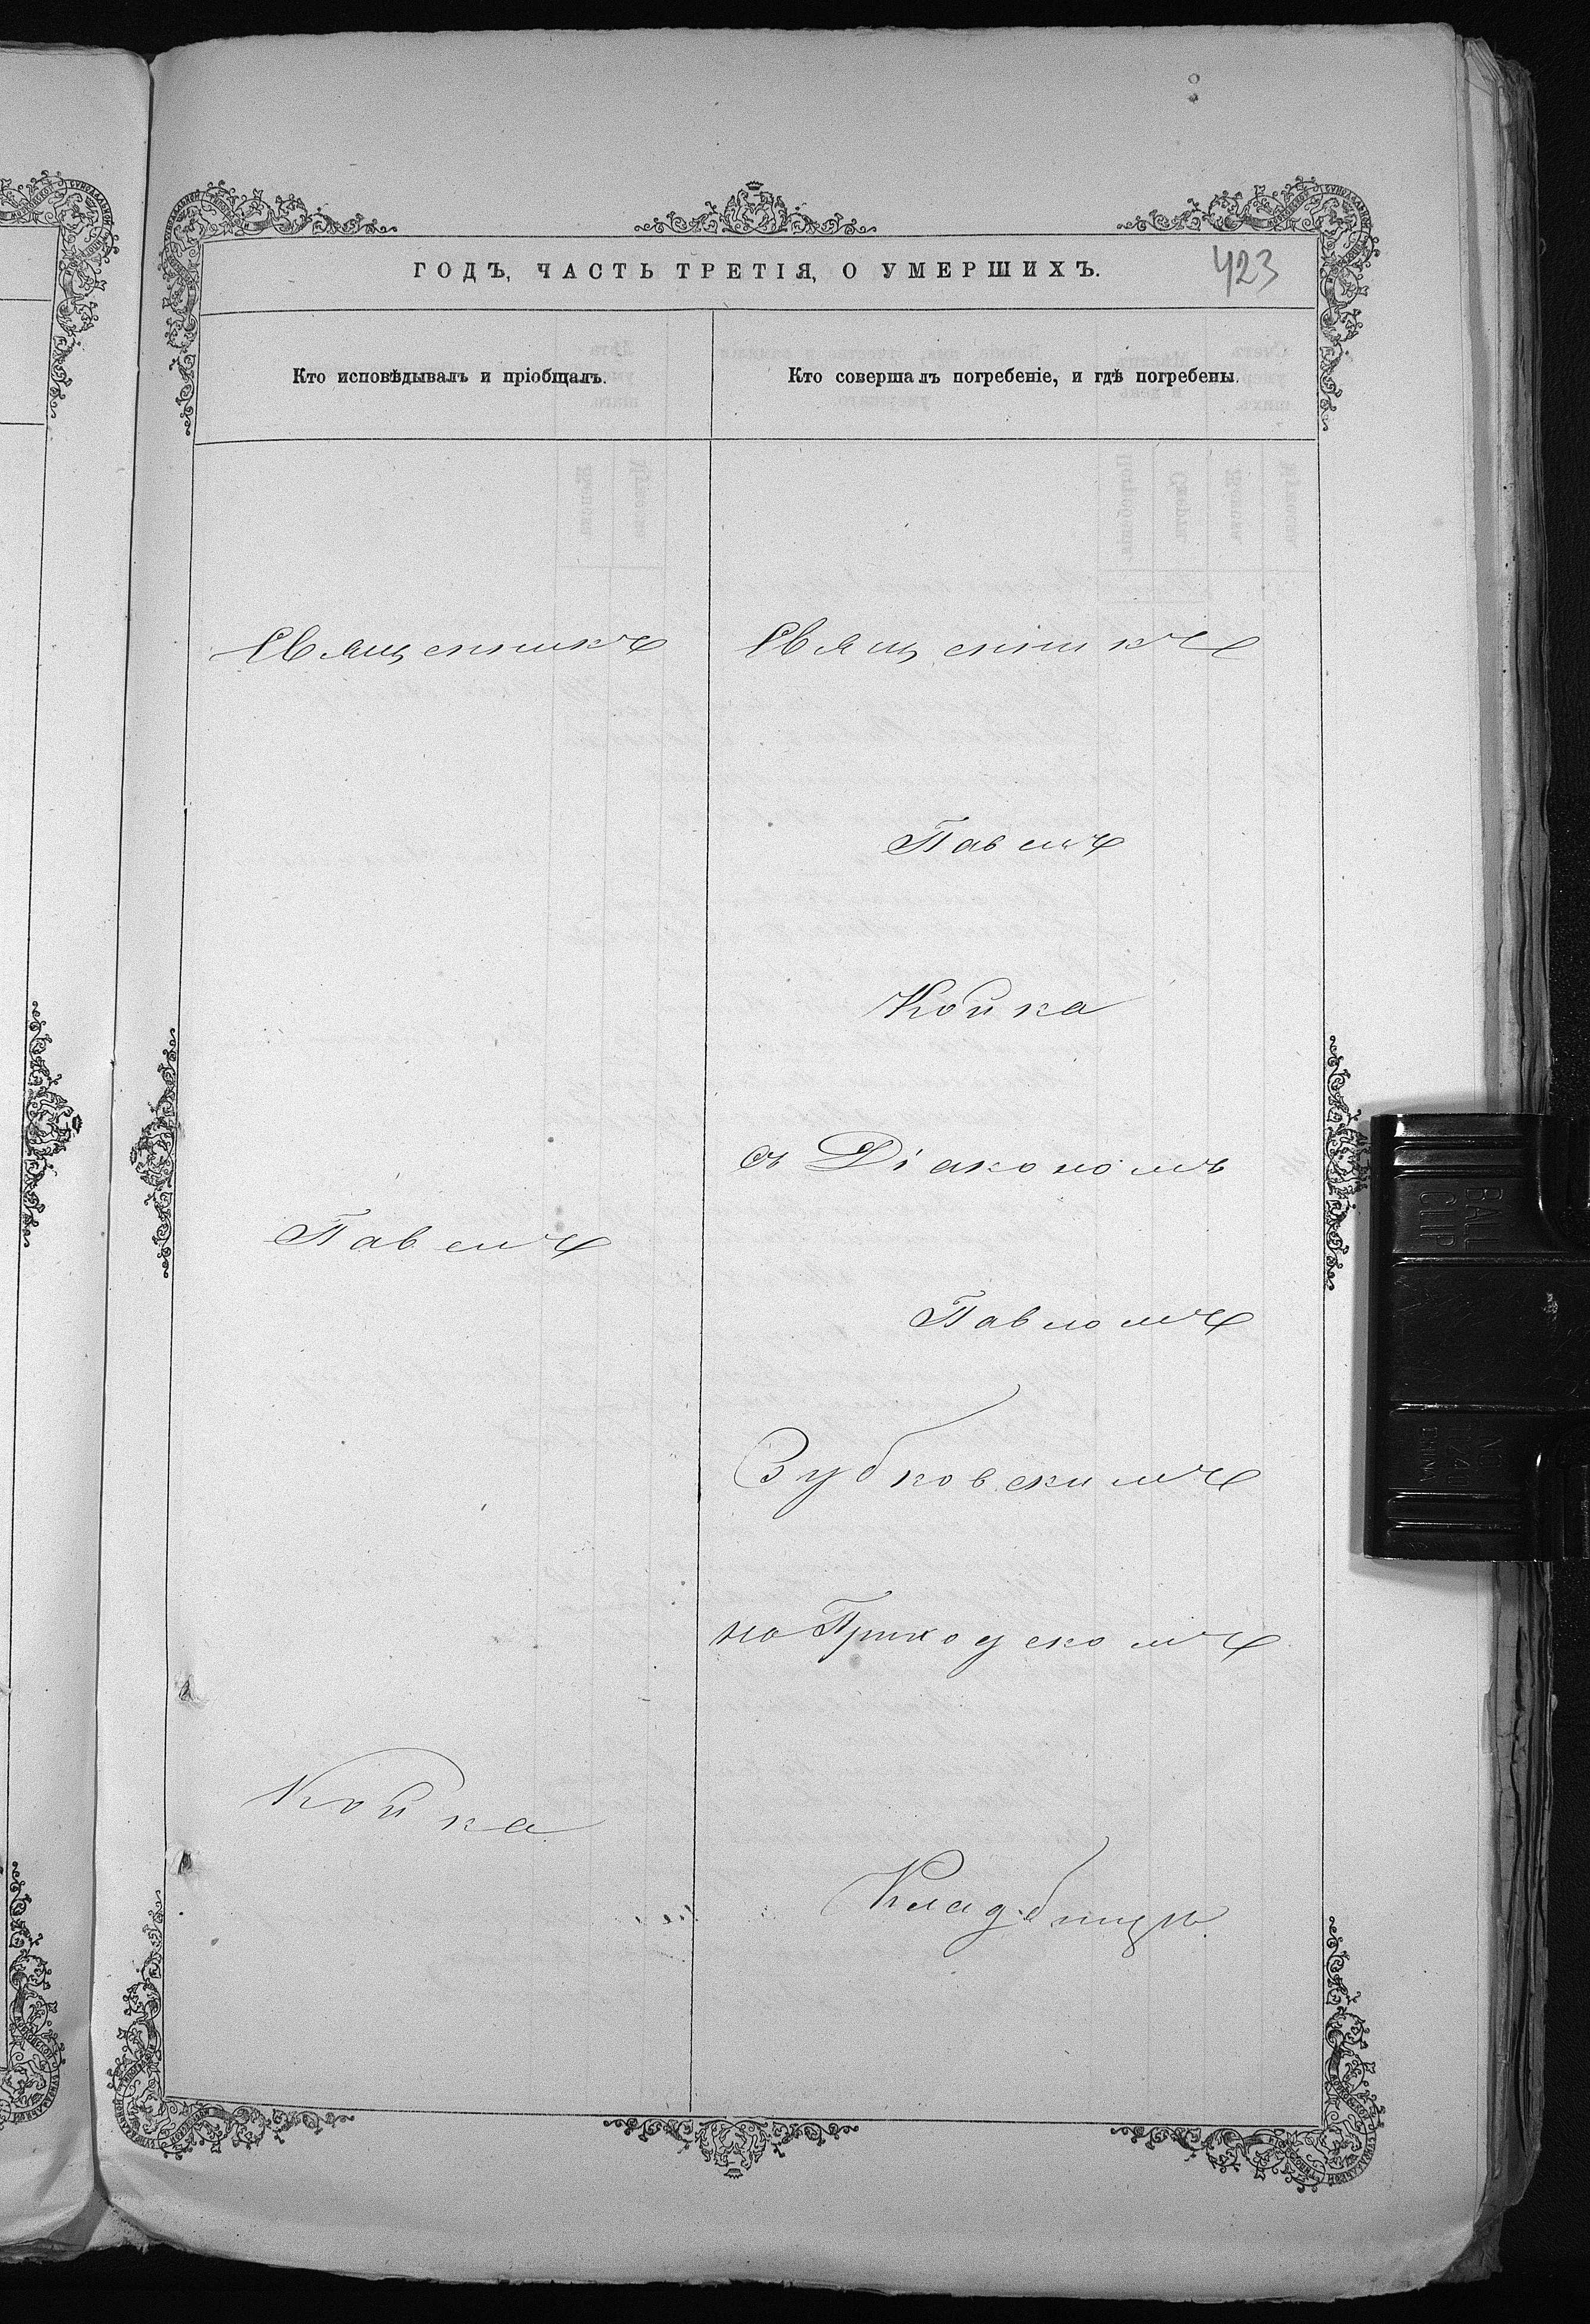 ГОДЪ, ЧАСТЬ ТРЕТІЯ, О УМЕРШИХЪ.
423
Кто исповѣдывалъ и пріобщалъ.
Кто совершалъ погребеніе, и гдѣ погребены.
Священникъ
Павелъ
Койка
Священникъ
Павелъ
Койка
съ Діакономъ
Павломъ
Зубковскимъ
на Приходскомъ
Кладбищѣ.
BALL
CLIP
NO
CHINA